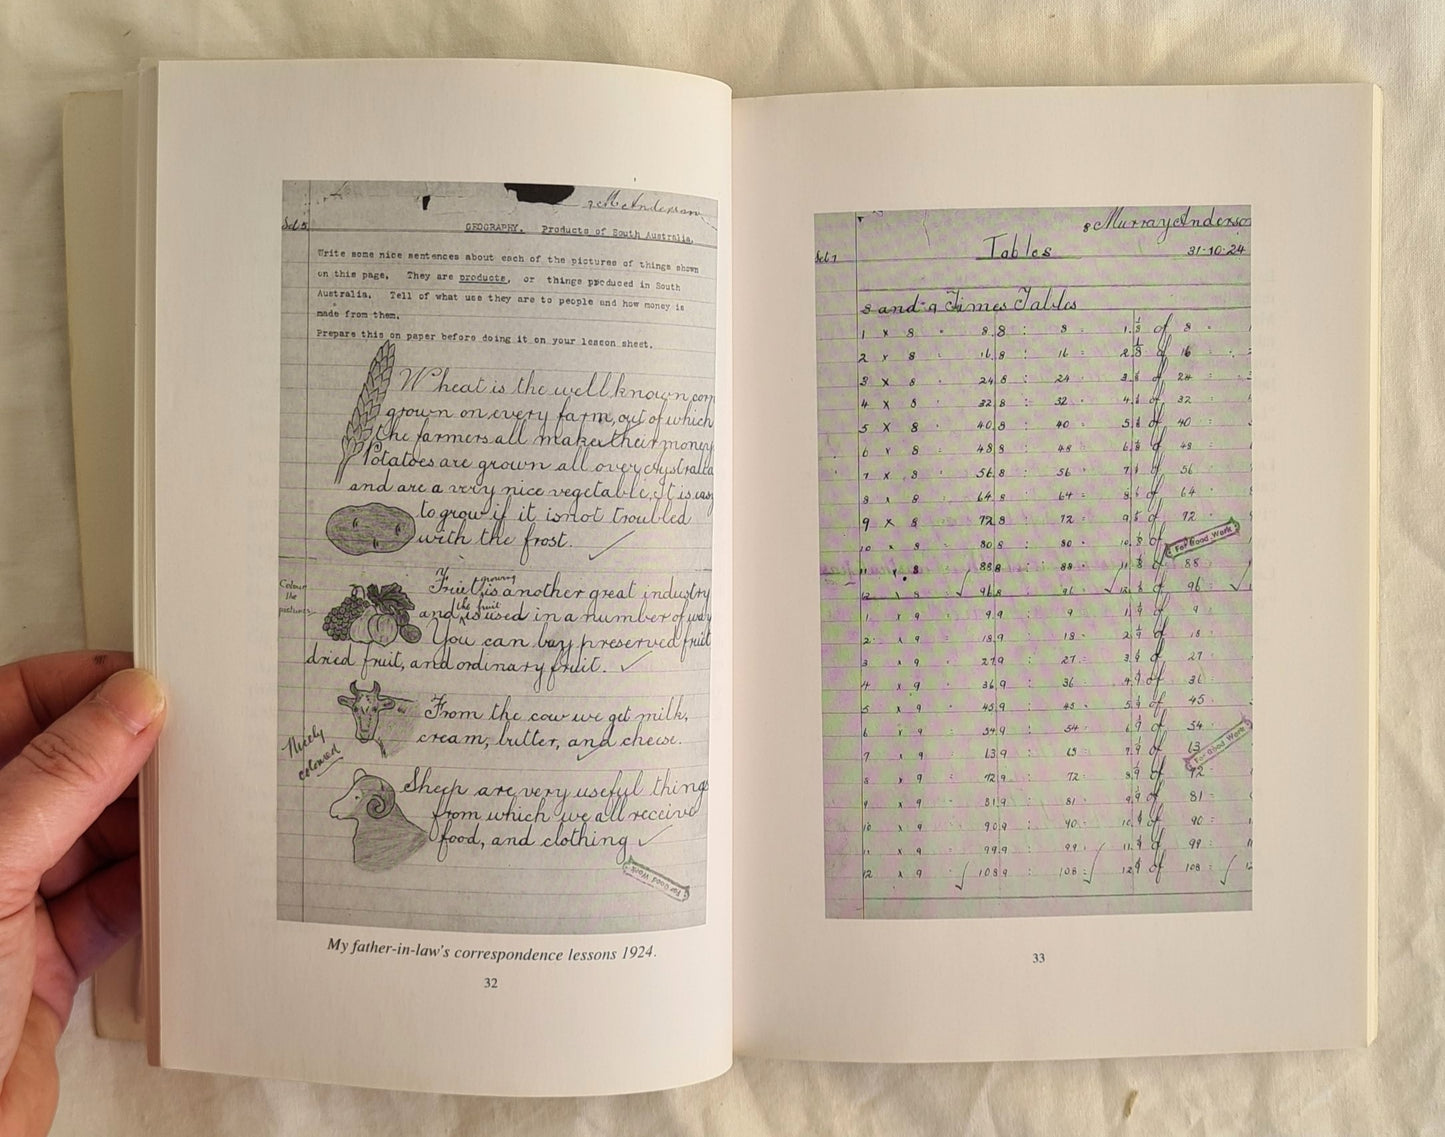 M Anderson
Set 5
GEOGRAPHY. Products of South Australia.
Write some nice sentences about each of the pictures of things shown
on this page. They are products, or things produced in South
Australia. Tell of what use they are to people and how money is
made from them.
Prepare this on paper before doing it on your lesson sheet.
Wheat is the well known corn
grown on every farm, out of which
the farmers all make their money.
Potatoes are grown all over Australia
and are a very nice vegetable, It is easy
to grow if it is not troubled
with the frost.
Colour
the
pictures
Fruit growing is another great industry
and the fruit is used in a number of way
You can buy preserved fruit
dried fruit, and ordinary fruit.
From the cow we get milk,
cream, butter, and cheese.
Nicely
coloured
Sheep are very useful things
from which we all receive
food, and clothing
For Good Work
My father-in-law's correspondence lessons 1924.
32
8 Murray Anderson
Set 7
Tables
31-10-24
8 and 9 Times Tables
1 x 8 = 8. 8 : 8 = 1. 1/8 of 8 =
2 x 8 = 16. 8 : 16 = 2. 1/8 of 16 =
3 x 8 = 24. 8 : 24 = 3. 1/8 of 24 =
4 x 8 = 32. 8 : 32 = 4. 1/8 of 32 =
5 x 8 = 40. 8 : 40 = 5. 1/8 of 40 =
6 x 8 = 48. 8 : 48 = 6. 1/8 of 48 =
7 x 8 = 56. 8 : 56 = 7. 1/8 of 56 =
8 x 8 = 64. 8 : 64 = 8. 1/8 of 64 =
9 x 8 = 72. 8 : 72 = 9. 1/8 of 72 =
10 x 8 = 80. 8 : 80 = 10. 1/8 of
For Good Work
11 x 8 = 88. 8 : 88 = 11. 1/8 of 88 =
12 x 8 = 96. 8 : 96 = 12. 1/8 of 96 =
1 x 9 = 9. 9 : 9 = 1. 1/9 of 9 =
2 x 9 = 18. 9 : 18 = 2. 1/9 of 18 =
3 x 9 = 27. 9 : 27 = 3. 1/9 of 27 =
4 x 9 = 36. 9 : 36 = 4. 1/9 of 36 =
5 x 9 = 45. 9 : 45 = 5. 1/9 of 45 =
6 x 9 = 54. 9 : 54 = 6. 1/9 of 54 =
7 x 9 = 63. 9 : 63 = 7. 1/9 of 63
For Good Work
8 x 9 = 72. 9 : 72 = 8. 1/9 of 72 =
9 x 9 = 81. 9 : 81 = 9. 1/9 of 81 =
10 x 9 = 90. 9 : 90 = 10. 1/9 of 90 =
11 x 9 = 99. 9 : 99 = 11. 1/9 of 99 =
12 x 9 = 108. 9 : 108 = 12. 1/9 of 108 = 12
33